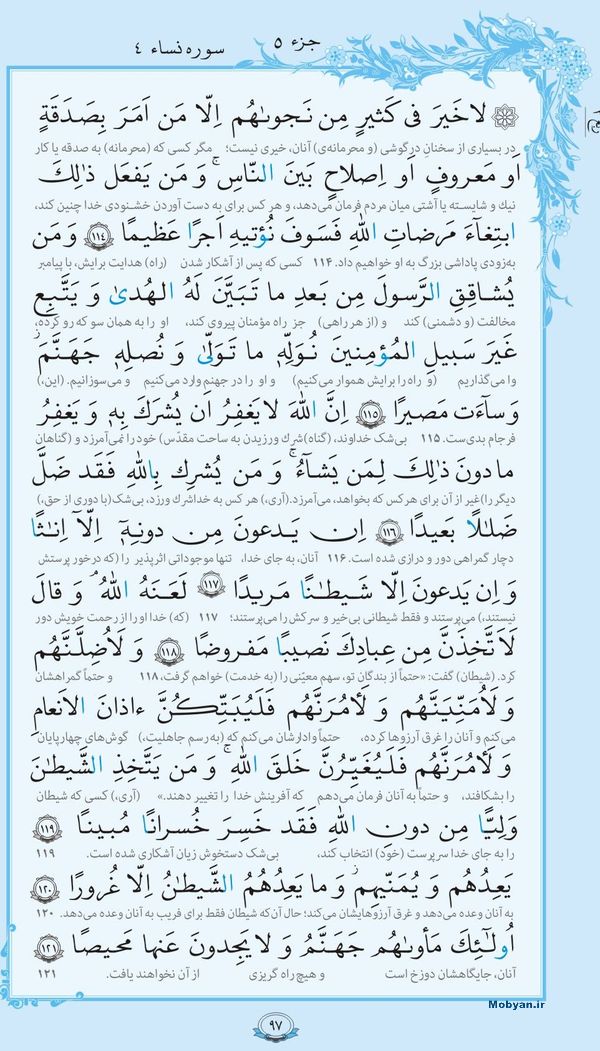 جزء ۵
سوره نساء ۴
لاخَیرَ فی کَثیرٍ مِن نَجوىٰهُم اِلّا مَن اَمَرَ بِصَدَقَةٍ
در بسیاری از سخنانِ درگوشی (و محرمانه‌ی) آنان، خیری نیست؛ مگر کسی که (محرمانه) به صدقه یا کار
اَو مَعروفٍ اَو اِصلاحٍ بَینَ النّاسِ ۚ وَ مَن یَفعَل ذٰلِكَ
نیك و شایسته یا آشتی میان مردم فرمان می‌دهد، و هر کس برای به دست آوردن خشنودی خدا چنین کند،
ابتِغآءَ مَرضاتِ اللهِ فَسَوفَ نُؤتیهِ اَجرًا عَظیمًا ﴿۱۱۴﴾ وَ مَن
به‌زودی پاداشی بزرگ به او خواهیم داد. ۱۱۴ کسی که پس از آشکار شدن (راه) هدایت برایش، با پیامبر
یُشاقِقِ الرَّسولَ مِن بَعدِ ما تَبَیَّنَ لَهُ الهُدىٰ وَ یَتَّبِع
مخالفت (و دشمنی) کند و (از هر راهی) جز راه مؤمنان پیروی کند، او را به همان سو که رو کرده،
غَیرَ سَبیلِ المُؤمِنینَ نُوَلِّهٖ ما تَوَلّىٰ وَ نُصلِهٖ جَهَنَّمَ ۖ
وا می‌گذاریم (و راه را برایش هموار می‌کنیم) و او را در جهنم وارد می‌کنیم و می‌سوزانیم. (این،)
وَ سآءَت مَصیرًا ﴿۱۱۵﴾ اِنَّ اللهَ لایَغفِرُ اَن یُشرَكَ بِهٖ وَ یَغفِرُ
فرجام بدی‌ست. ۱۱۵ بی‌شک خداوند، (گناه) شرك ورزیدن به ساحت مقدّس) خود را نمی‌آمرزد و (گناهان
ما دونَ ذٰلِكَ لِمَن یَشآءُ ۚ وَ مَن یُشرِك بِاللهِ فَقَد ضَلَّ
دیگر را) غیر از آن برای هرکس که بخواهد، می‌آمرزد. (آری،) هر کس به خدا شرك ورزد، بی‌شک (با دوری از حق،)
ضَلٰلًا بَعیدًا ﴿۱۱۶﴾ اِن یَدعونَ مِن دونِهٖٓ اِلّآ اِنٰثًا
دچار گمراهی دور و درازی شده است. ۱۱۶ آنان، به جای خدا، تنها موجوداتی اثرپذیر را (که درخور پرستش
وَ اِن یَدعونَ اِلّا شَیطٰنًا مَریدًا ﴿۱۱۷﴾ لَعَنَهُ اللهُ ۘ وَ قالَ
نیستند،) می‌پرستند و فقط شیطانی بی‌خیر و سرکش را می‌پرستند؛ ۱۱۷ (که) خدا او را از رحمت خویش دور
لَاَتَّخِذَنَّ مِن عِبادِكَ نَصیبًا مَفروضًا ﴿۱۱۸﴾ وَ لَاُضِلَّنَّهُم
کرد. (شیطان) گفت: «حتماً از بندگان تو، سهم معیّنی را (به خدمت) خواهم گرفت، ۱۱۸ و حتماً گمراهشان
وَ لَاُمَنِّیَنَّهُم وَ لَآمُرَنَّهُم فَلَیُبَتِّکُنَّ ءاذانَ الاَنعامِ
می‌کنم و آنان را غرق آرزوها کرده، حتماً وادارشان می‌کنم که (به‌رسم جاهلیت،) گوش‌های چهارپایان
وَ لَآمُرَنَّهُم فَلَیُغَیِّرُنَّ خَلقَ اللهِ ۚ وَ مَن یَتَّخِذِ الشَّیطٰنَ
را بشکافند، و حتماً به آنان فرمان می‌دهم که آفرینش خدا را تغییر دهند.» (آری،) کسی که شیطان
وَلِیًّا مِن دونِ اللهِ فَقَد خَسِرَ خُسرانًا مُبینًا ﴿۱۱۹﴾
را به جای خدا سرپرست (خود) انتخاب کند، بی‌شک دستخوش زیان آشکاری شده است. ۱۱۹
یَعِدُهُم وَ یُمَنّیهِم ۖ وَ ما یَعِدُهُمُ الشَّیطٰنُ اِلّا غُرورًا ﴿۱۲۰﴾
به آنان وعده می‌دهد و غرق آرزوهایشان می‌کند؛ حال آن‌که شیطان فقط برای فریب به آنان وعده می‌دهد. ۱۲۰
اُولٰٓئِكَ مَأوىٰهُم جَهَنَّمُ وَ لا یَجِدونَ عَنها مَحیصًا ﴿۱۲۱﴾
آنان، جایگاهشان دوزخ است و هیچ راه گریزی از آن نخواهند یافت. ۱۲۱
۹۷
Mobyan.ir